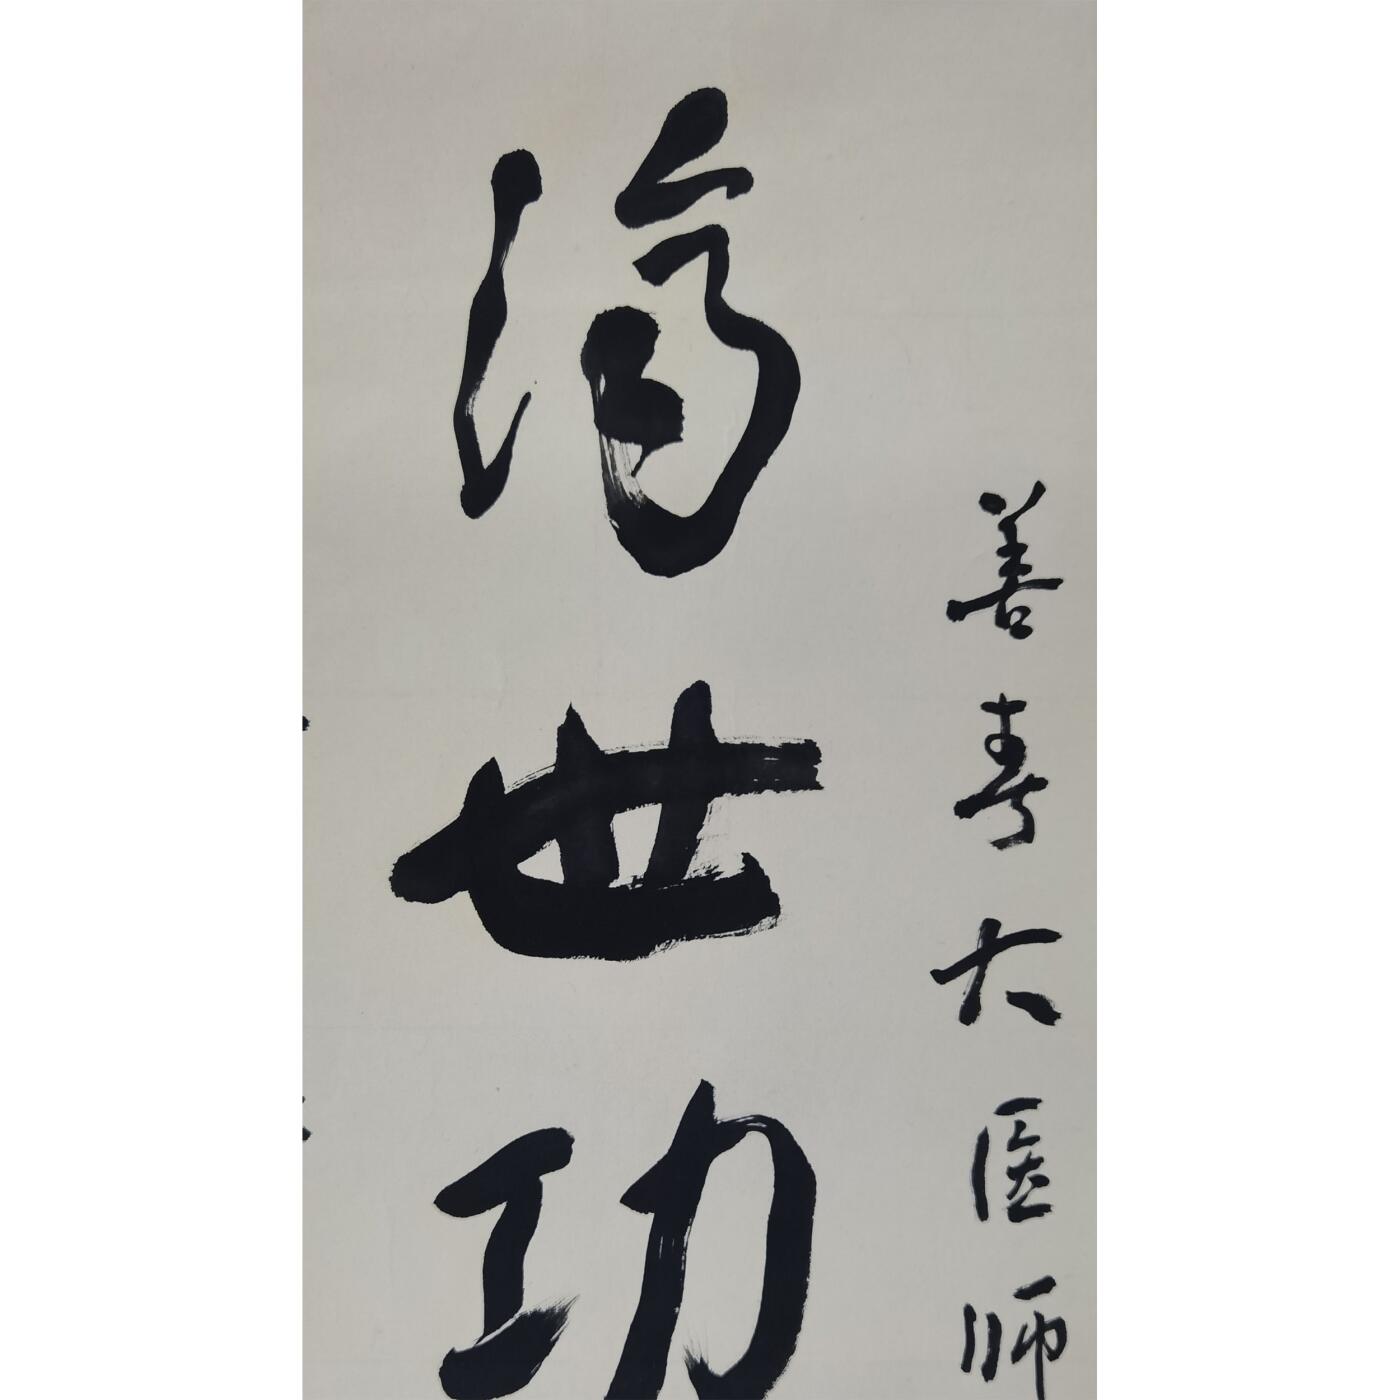 善寿大医师
济世功